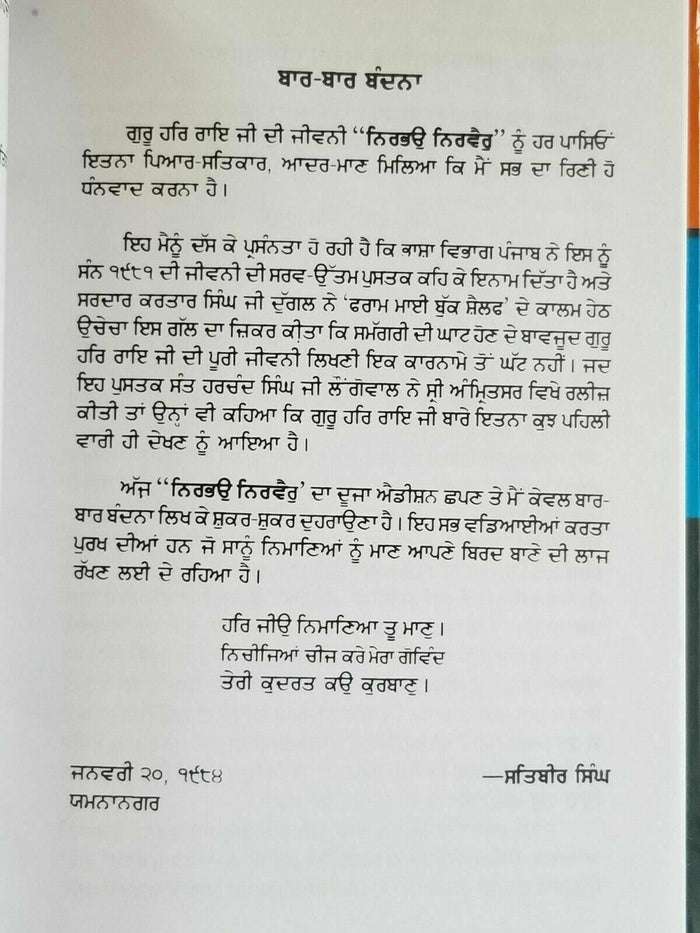 ਬਾਰ-ਬਾਰ ਬੰਦਨਾ
ਗੁਰੂ ਹਰਿ ਰਾਇ ਜੀ ਦੀ ਜੀਵਨੀ “ਨਿਰਭਉ ਨਿਰਵੈਰੁ” ਨੂੰ ਹਰ ਪਾਸਿਓਂ
ਇਤਨਾ ਪਿਆਰ-ਸਤਿਕਾਰ, ਆਦਰ-ਮਾਣ ਮਿਲਿਆ ਕਿ ਮੈਂ ਸਭ ਦਾ ਰਿਣੀ ਹੋ
ਧੰਨਵਾਦ ਕਰਨਾ ਹੈ।
ਇਹ ਮੈਨੂੰ ਦੱਸ ਕੇ ਪ੍ਰਸੰਨਤਾ ਹੋ ਰਹੀ ਹੈ ਕਿ ਭਾਸ਼ਾ ਵਿਭਾਗ ਪੰਜਾਬ ਨੇ ਇਸ ਨੂੰ
ਸੰਨ ੧੯੮੧ ਦੀ ਜੀਵਨੀ ਦੀ ਸਰਵ-ਉੱਤਮ ਪੁਸਤਕ ਕਹਿ ਕੇ ਇਨਾਮ ਦਿੱਤਾ ਹੈ ਅਤੇ
ਸਰਦਾਰ ਕਰਤਾਰ ਸਿੰਘ ਜੀ ਦੁੱਗਲ ਨੇ ‘ਫਰਾਮ ਮਾਈ ਬੁੱਕ ਸ਼ੈਲਫ’ ਦੇ ਕਾਲਮ ਹੇਠ
ਉਚੇਚਾ ਇਸ ਗੱਲ ਦਾ ਜ਼ਿਕਰ ਕੀਤਾ ਕਿ ਸਮੱਗਰੀ ਦੀ ਘਾਟ ਹੋਣ ਦੇ ਬਾਵਜੂਦ ਗੁਰੂ
ਹਰਿ ਰਾਇ ਜੀ ਦੀ ਪੂਰੀ ਜੀਵਨੀ ਲਿਖਣੀ ਇਕ ਕਾਰਨਾਮੇ ਤੋਂ ਘੱਟ ਨਹੀਂ। ਜਦ
ਇਹ ਪੁਸਤਕ ਸੰਤ ਹਰਚੰਦ ਸਿੰਘ ਜੀ ਲੌਂਗੋਵਾਲ ਨੇ ਸ੍ਰੀ ਅੰਮ੍ਰਿਤਸਰ ਵਿਖੇ ਰਲੀਜ਼
ਕੀਤੀ ਤਾਂ ਉਨ੍ਹਾਂ ਵੀ ਕਹਿਆ ਕਿ ਗੁਰੂ ਹਰਿ ਰਾਇ ਜੀ ਬਾਰੇ ਇਤਨਾ ਕੁਝ ਪਹਿਲੀ
ਵਾਰੀ ਹੀ ਦੇਖਣ ਨੂੰ ਆਇਆ ਹੈ।
ਅੱਜ “ਨਿਰਭਉ ਨਿਰਵੈਰੁ’ ਦਾ ਦੂਜਾ ਐਡੀਸ਼ਨ ਛਪਣ ਤੇ ਮੈਂ ਕੇਵਲ ਬਾਰ-
ਬਾਰ ਬੰਦਨਾ ਲਿਖ ਕੇ ਸ਼ੁਕਰ-ਸ਼ੁਕਰ ਦੁਹਰਾਉਣਾ ਹੈ। ਇਹ ਸਭ ਵਡਿਆਈਆਂ ਕਰਤਾ
ਪੁਰਖ ਦੀਆਂ ਹਨ ਜੋ ਸਾਨੂੰ ਨਿਮਾਣਿਆਂ ਨੂੰ ਮਾਣ ਆਪਣੇ ਬਿਰਦ ਬਾਣੇ ਦੀ ਲਾਜ
ਰੱਖਣ ਲਈ ਦੇ ਰਹਿਆ ਹੈ।
ਹਰਿ ਜੀਉ ਨਿਮਾਣਿਆ ਤੂ ਮਾਣੁ।
ਨਿਚੀਜਿਆਂ ਚੀਜ ਕਰੇ ਮੇਰਾ ਗੋਵਿੰਦ
ਤੇਰੀ ਕੁਦਰਤ ਕਉ ਕੁਰਬਾਣੁ।
ਜਨਵਰੀ ੨੦, ੧੯੮੪
—ਸਤਿਬੀਰ ਸਿੰਘ
ਯਮਨਾਨਗਰ